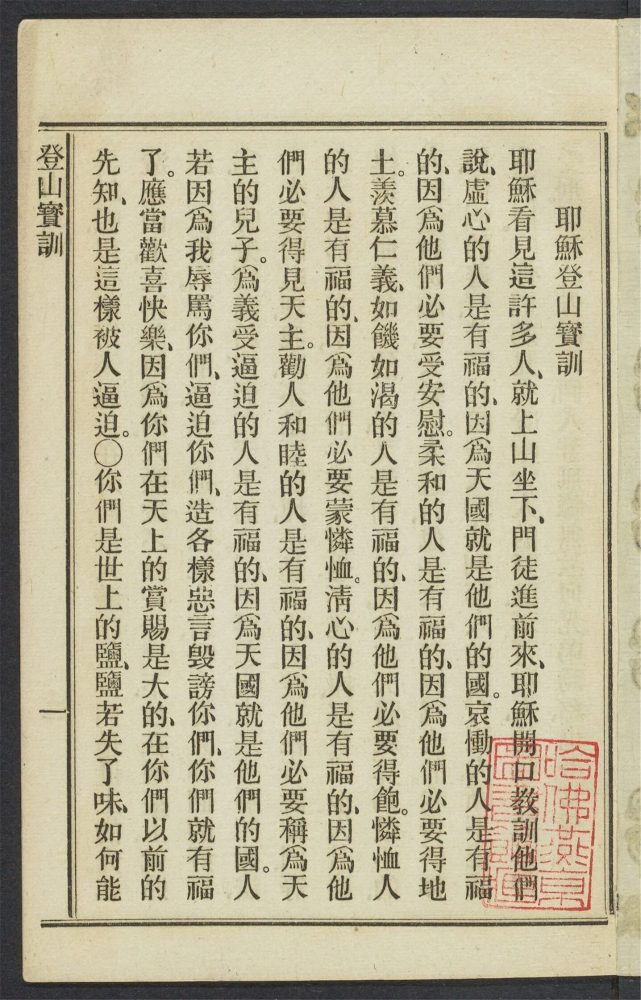 耶穌登山寶訓
耶穌看見這許多人、就上山坐下、門徒進前來、耶穌開口教訓他們
說、虛心的人是有福的、因爲天國就是他們的國。哀慟的人是有福
的、因爲他們必要受安慰。柔和的人是有福的、因爲他們必要得地
土。羨慕仁義、如饑如渴的人是有福的、因爲他們必要得飽。憐恤人
的人是有福的、因爲他們必要蒙憐恤。淸心的人是有福的、因爲他
們必要得見天主。勸人和睦的人是有福的、因爲他們必要稱爲天
主的兒子。爲義受逼迫的人是有福的、因爲天國就是他們的國。人
若因爲我辱罵你們、逼迫你們、造各樣惡言毀謗你們、你們就有福
了。應當歡喜快樂、因爲你們在天上的賞賜是大的、在你們以前的
先知、也是這樣被人逼迫。〇你們是世上的鹽、鹽若失了味、如何能
登山寶訓
一
哈佛燕京
圖書館